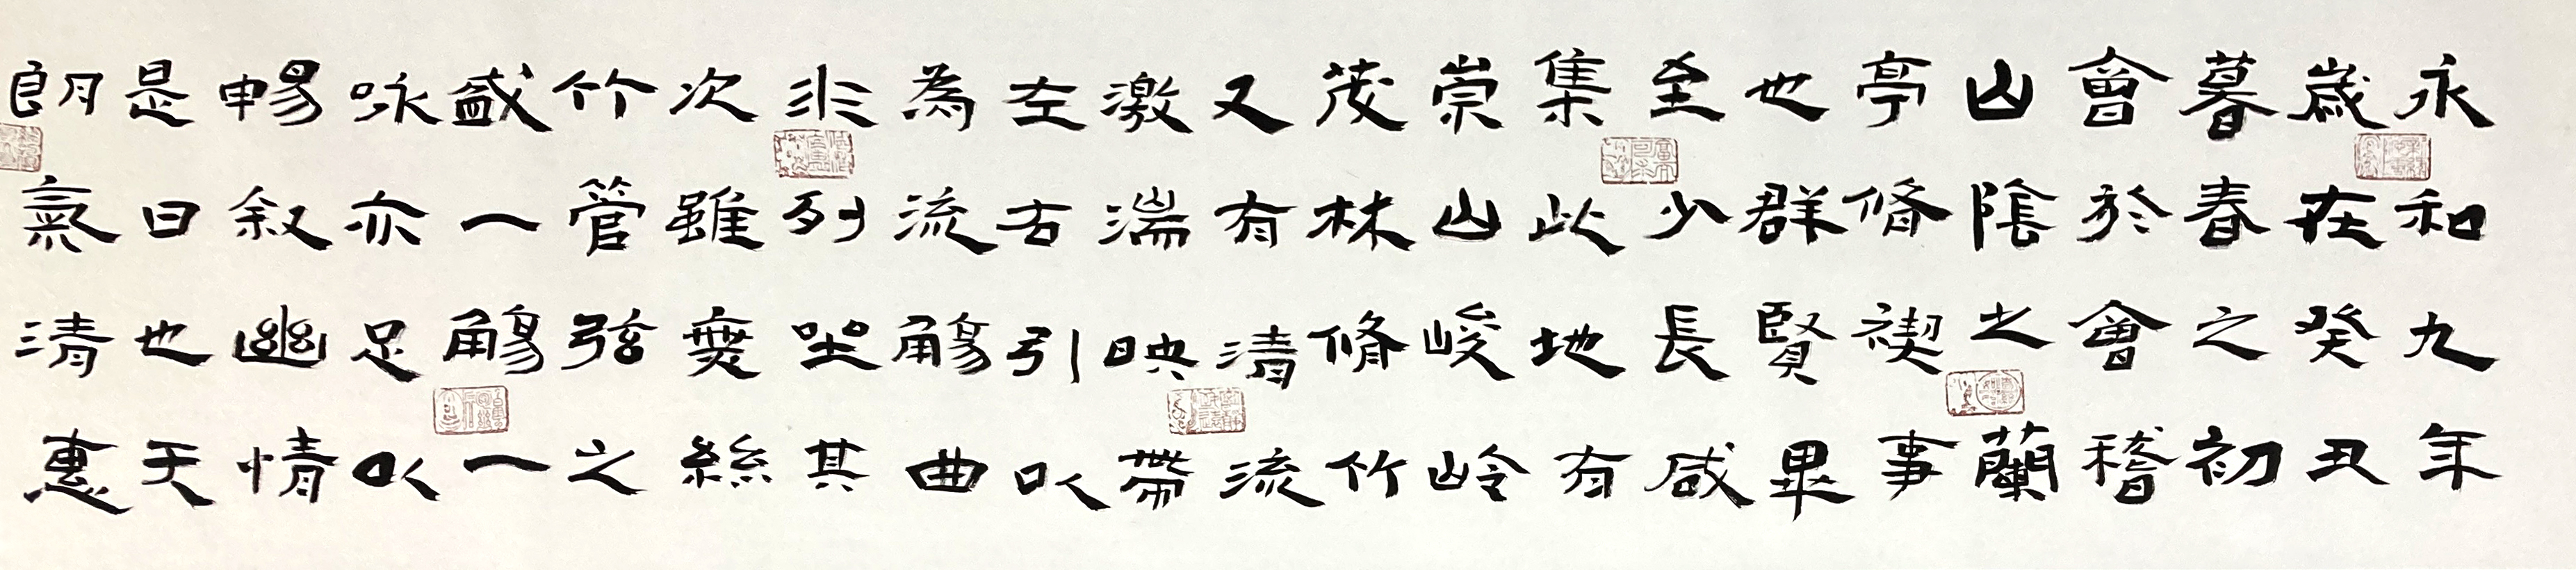 永和九年
歲在癸丑
暮春之初
會於會稽
山陰之蘭
亭脩禊事
也群賢畢
至少長咸
集此地有
崇山峻岭
茂林脩竹
又有清流
激湍映帶
左右引以
為流觴曲
水列坐其
次雖無絲
竹管弦之
盛一觴一
咏亦足以
暢叙幽情
是日也天
朗氣清惠